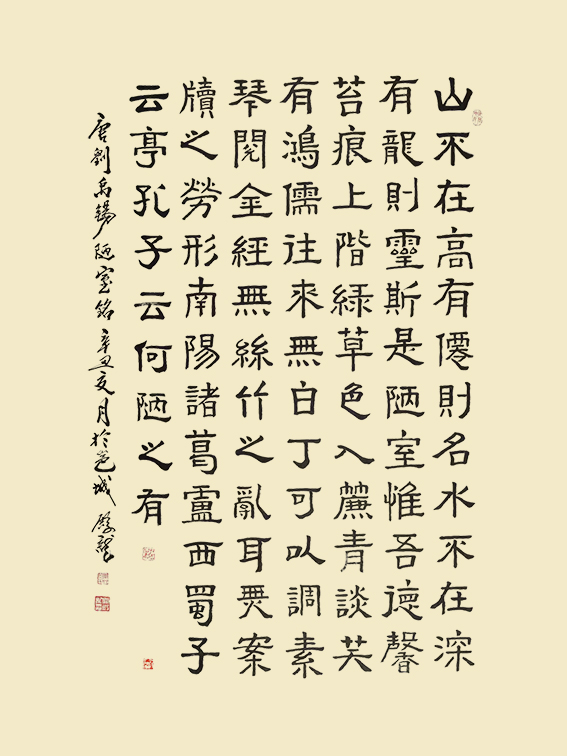 山不在高有僊則名水不在深
有龍則靈斯是陋室惟吾德馨
苔痕上階緑草色入簾青談笑
有鴻儒往來無白丁可以調素
琴閱金經無絲竹之亂耳無案
牘之勞形南陽諸葛盧西蜀子
云亭孔子云何陋之有
唐劉禹錫陋室銘辛丑夏月於邕城